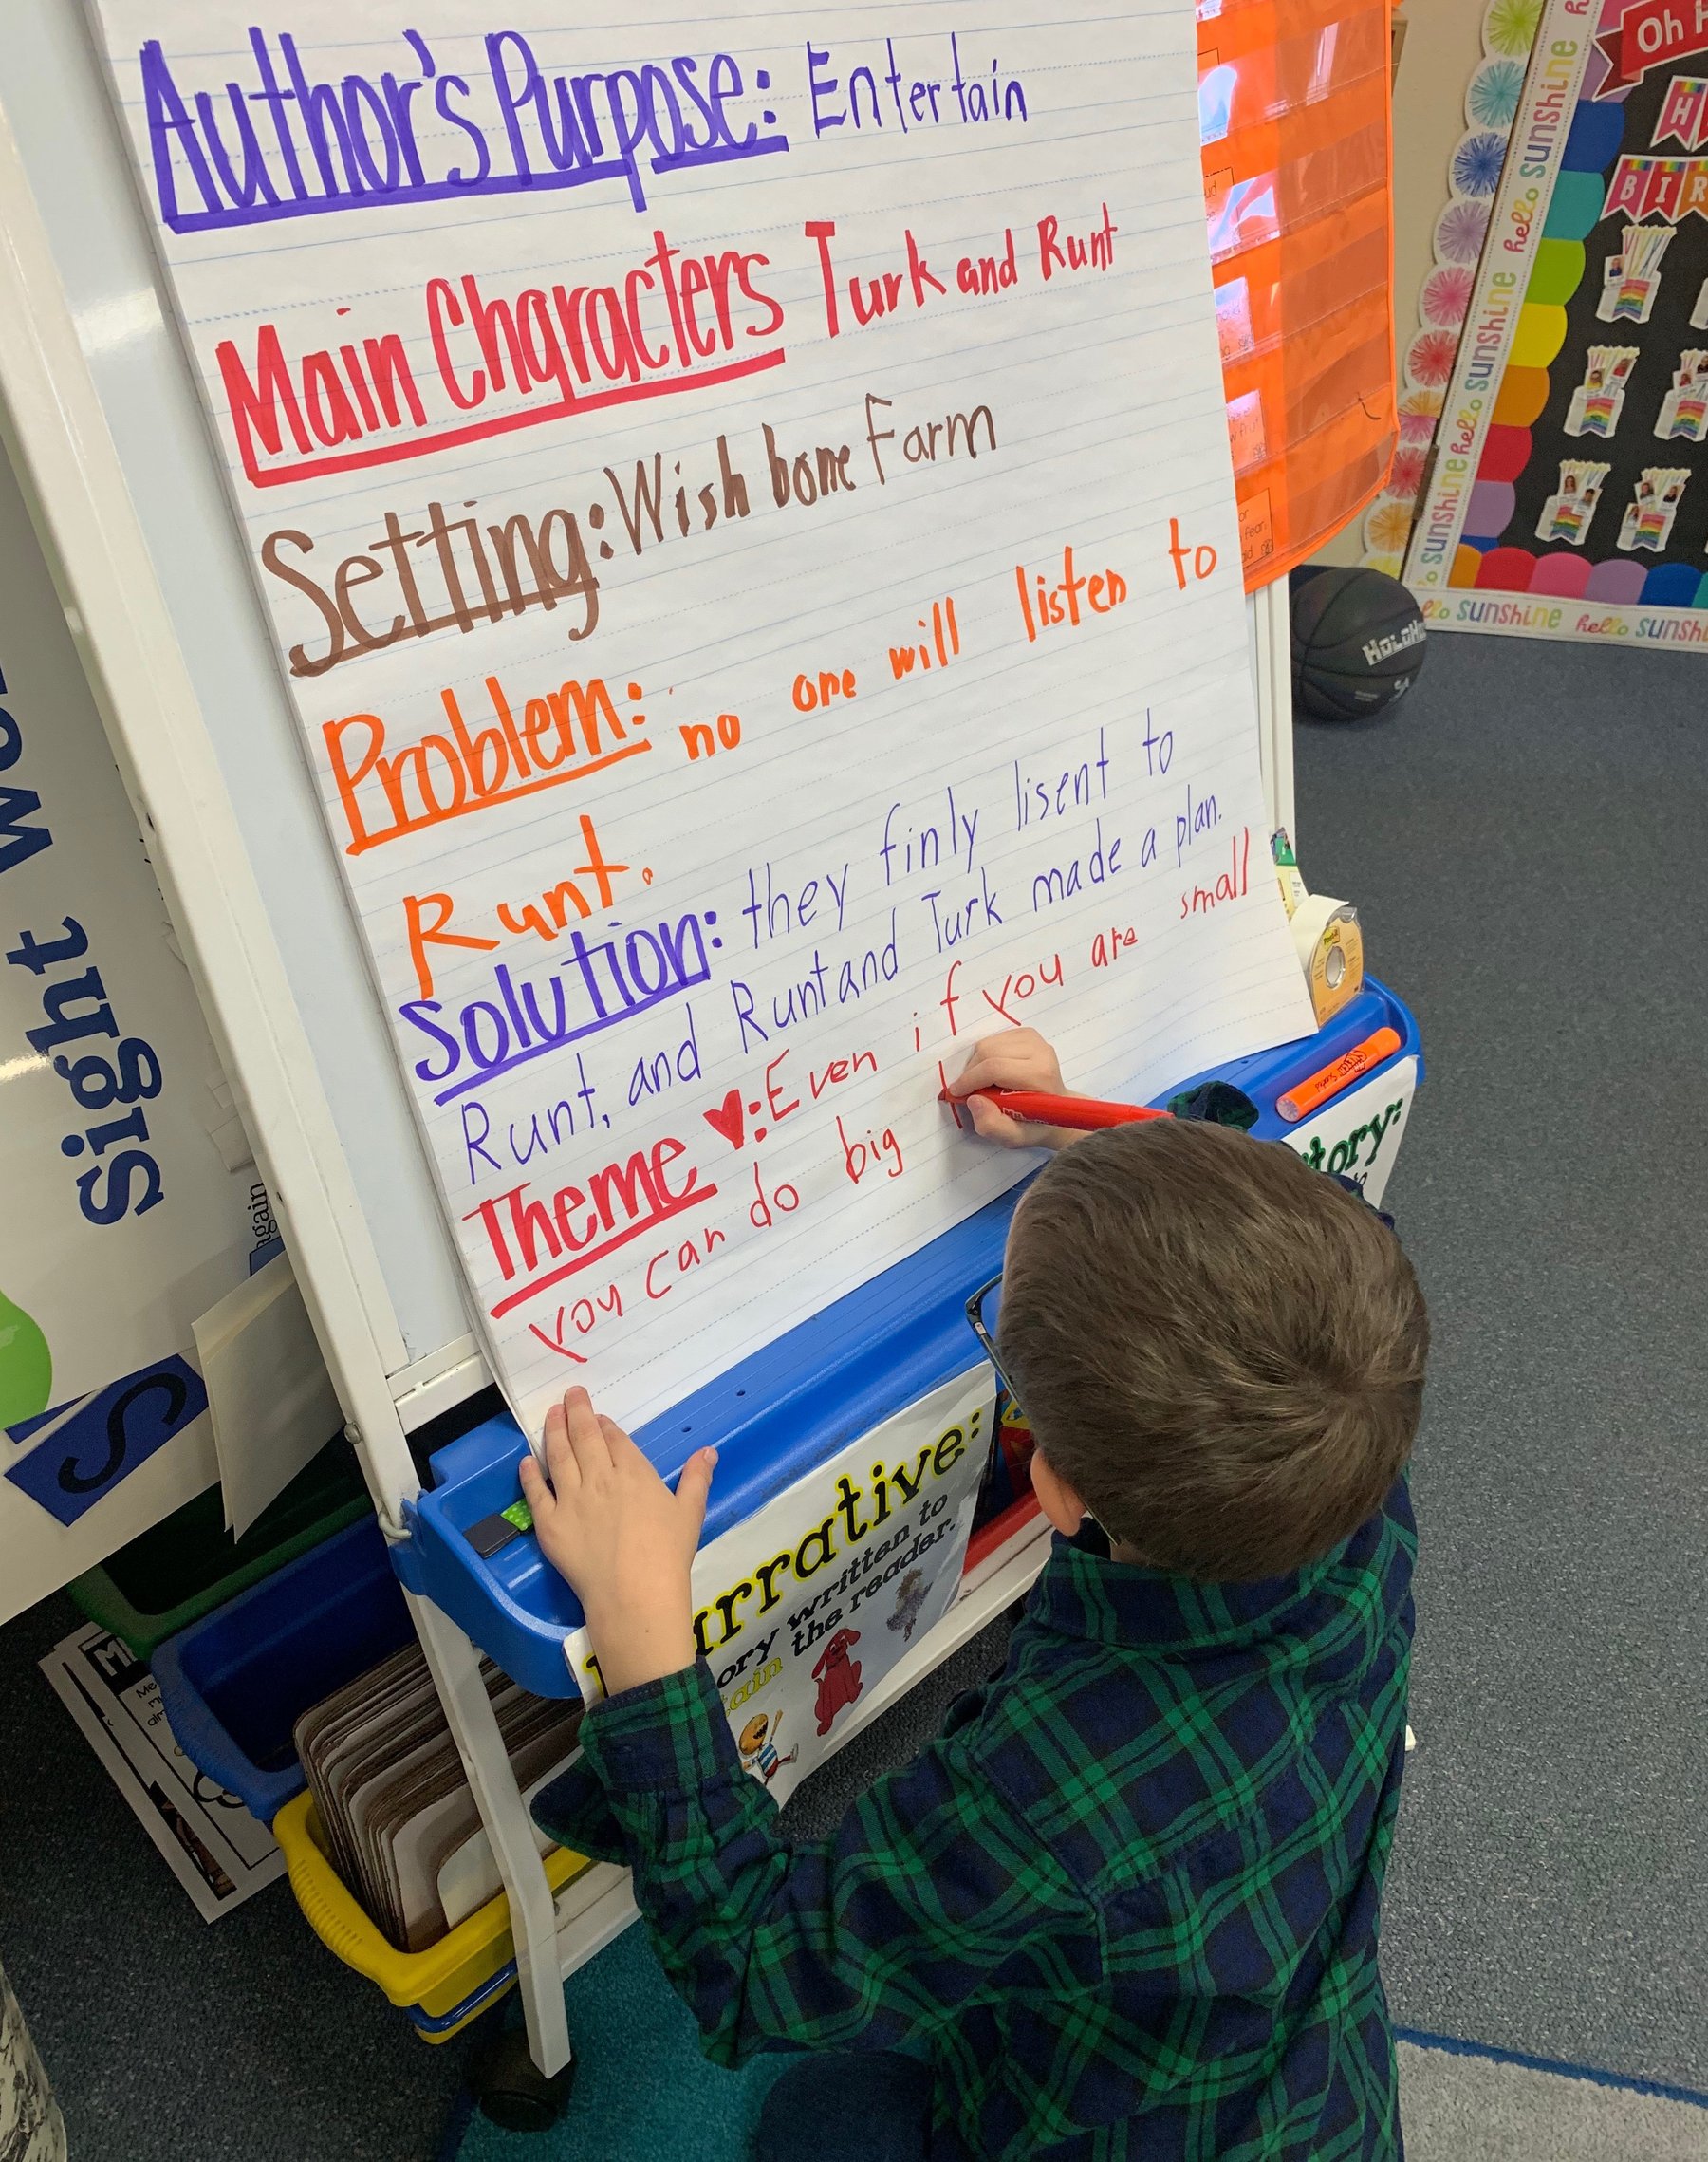 Author's Purpose: Entertain
Main Characters Turk and Runt
Setting: Wish bone Farm
Problem: no one will listen to
Runt.
Solution: they finly lisent to
Runt, and Runt and Turk made a plan.
Theme ♥: Even if you are small
you can do big
Sight
again
S
Oh
H
BIR
hello sunshine hello sunshine hello sunshine
hello sunshine hello sunshine
tory:
written to
the reader.